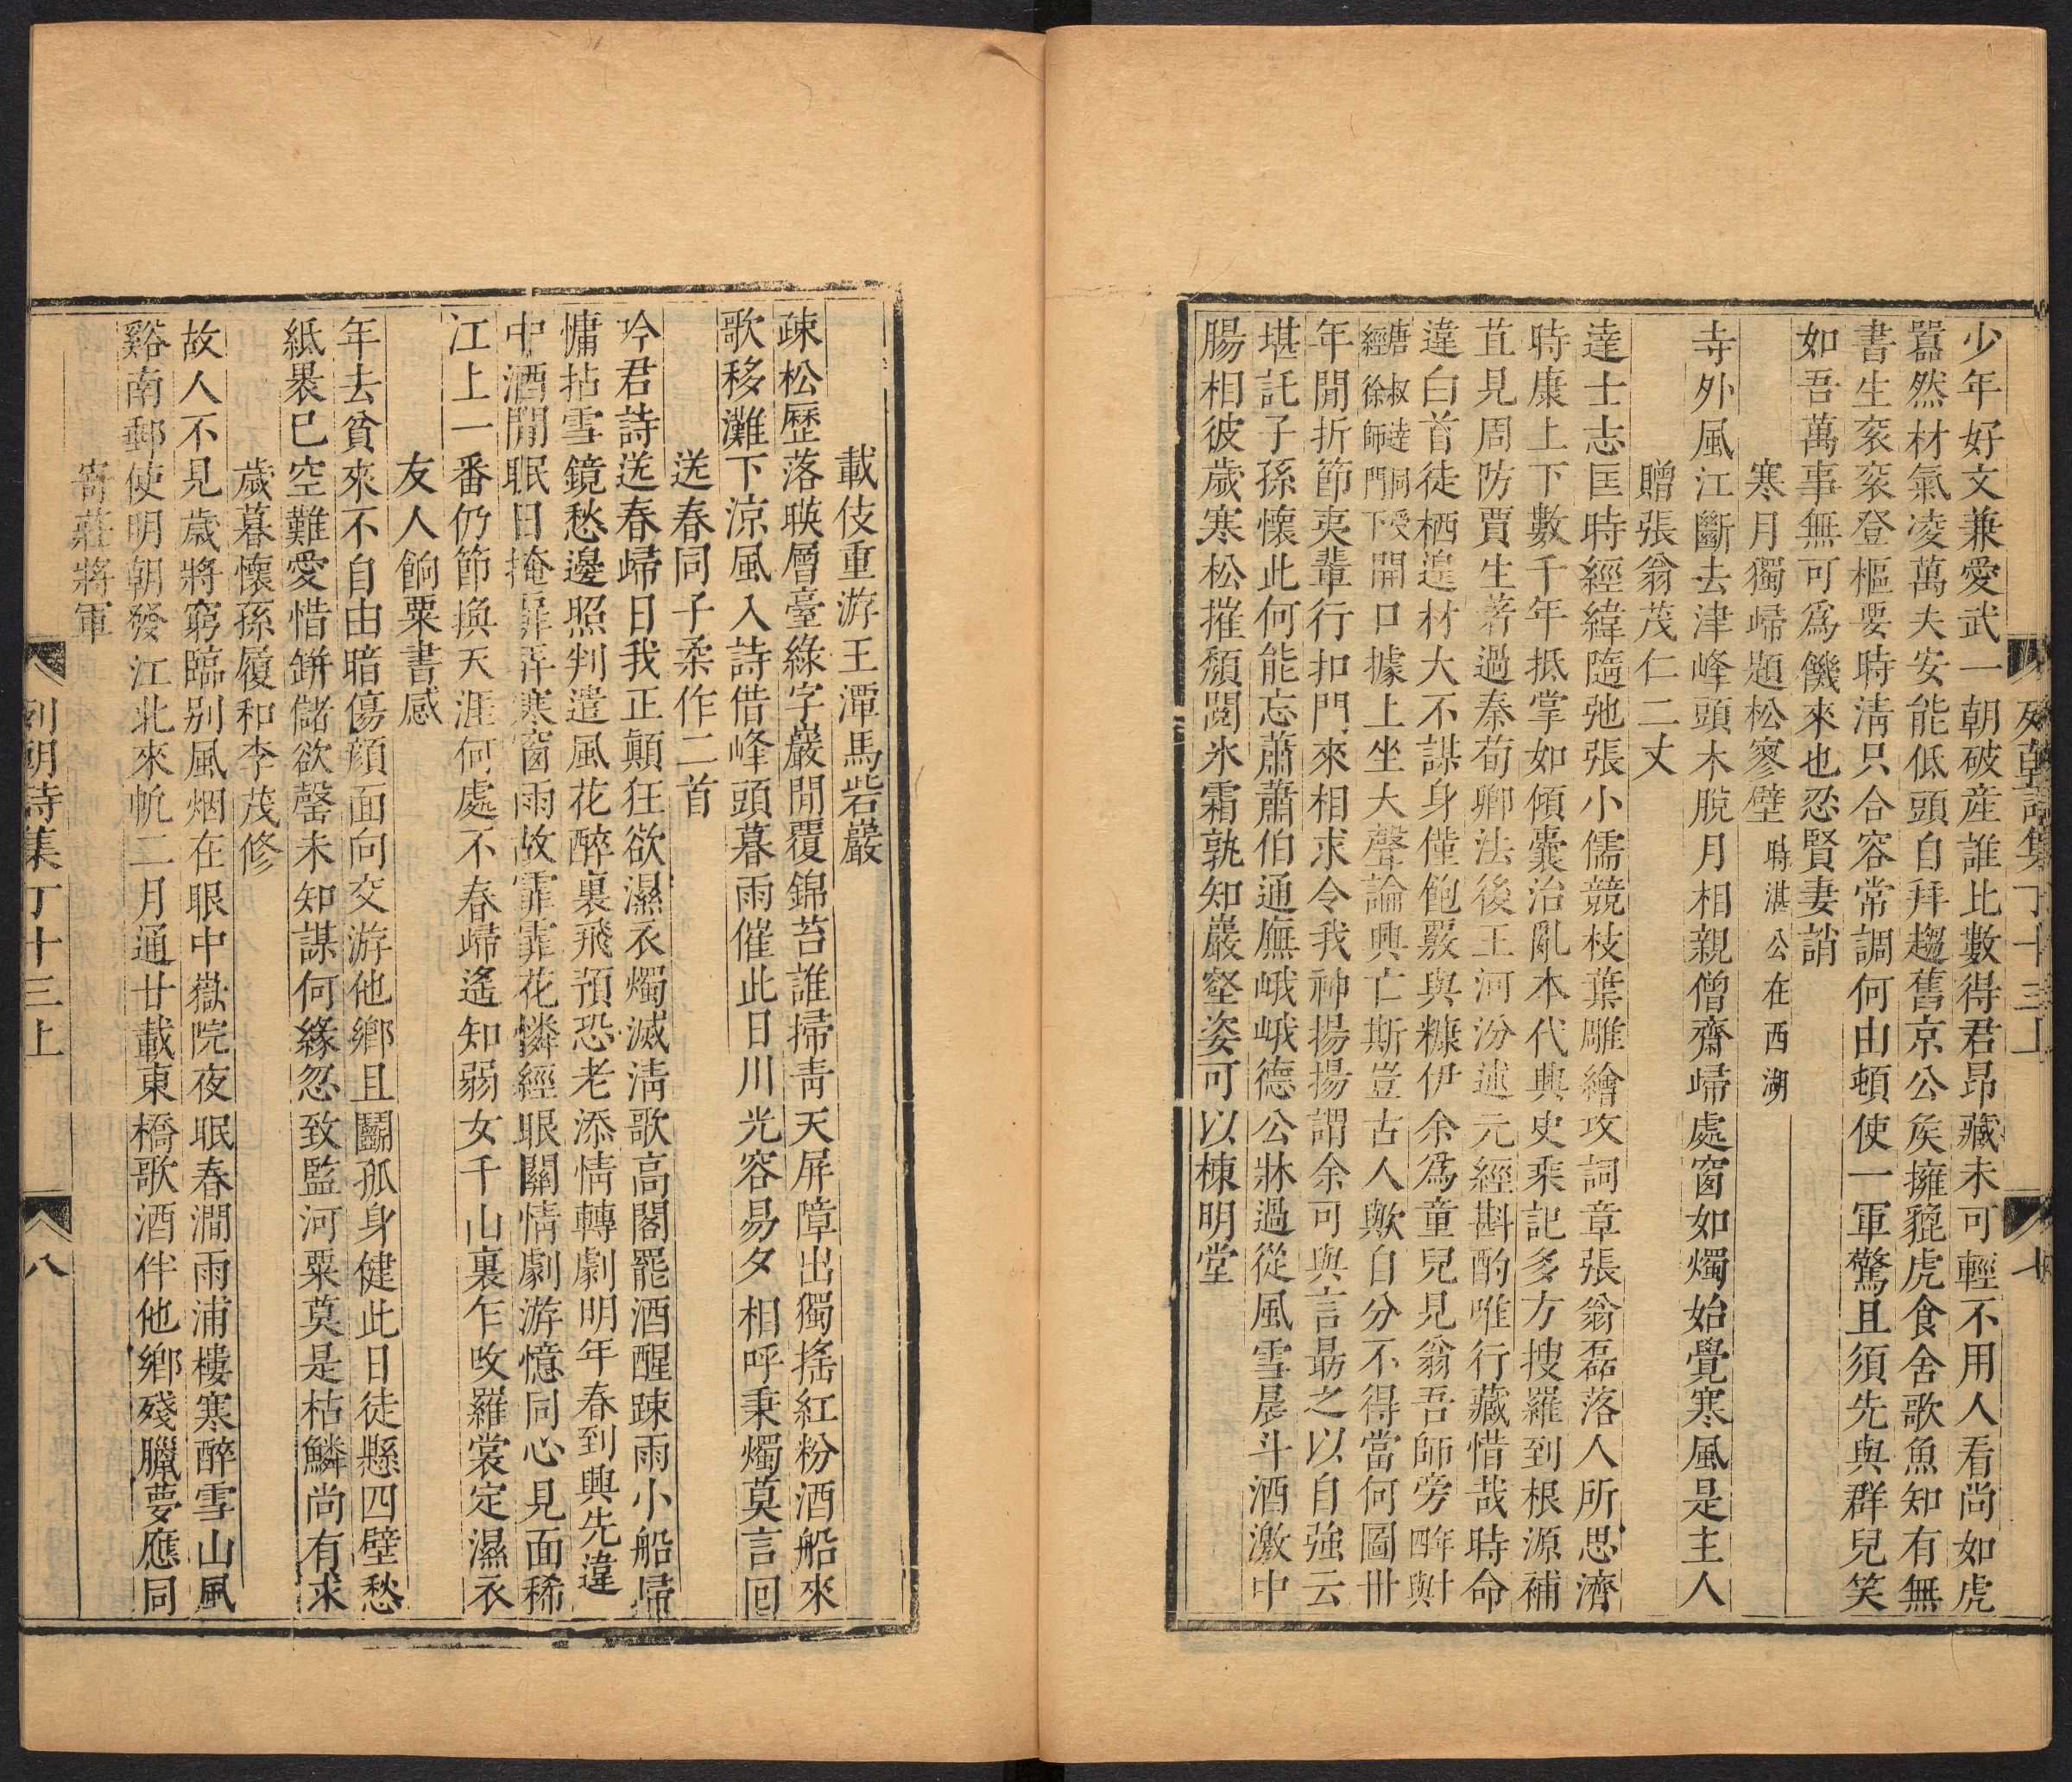 列朝詩集丁十三上
七
少年好文兼愛武一朝破産誰比數得君昂藏未可輕不用人看尚如虎
囂然材氣凌萬夫安能低頭自拜趨舊京公矦擁貔虎食舍歌魚知有無
書生衮衮登樞要時清只合容常調何由頓使一軍驚且須先與群兒笑
如吾萬事無可爲饑來也忍賢妻誚
寒月獨歸題松寥壁時湛公在西湖
寺外風江斷去津峰頭木脫月相親僧齋歸處窗如燭始覺寒風是主人
贈張翁茂仁二丈
達士志匡時經緯隨弛張小儒競枝葉雕繪攻詞章張翁磊落人所思濟
時康上下數千年抵掌如傾囊治亂本代興史乘記多方搜羅到根源補
苴見周防賈生著過秦荀卿法後王河汾述元經斟酌唯行藏惜哉時命
違白首徒栖遑材大不謀身僅飽覈與糠伊余爲童兒見翁吾師旁年十四與
唐叔達同受經徐師門下開口據上坐大聲論興亡斯豈古人歟自分不得當何圖卌
年閒折節夷輩行扣門來相求令我神揚揚謂余可與言最之以自強云
堪託子孫懷此何能忘蕭蕭伯通廡峨峨德公牀過從風雪晨斗酒激中
腸相彼歲寒松摧頹閱氷霜孰知巖壑姿可以棟明堂
載伎重游王潭馬砦巖
疎松歷落暎層臺綠字巖閒覆錦苔誰掃靑天屏障出獨搖紅粉酒船來
歌移灘下涼風入詩借峰頭暮雨催此日川光容易夕相呼秉燭莫言回
送春同子柔作二首
吟君詩送春歸日我正顛狂欲濕衣燭滅淸歌高閣罷酒醒踈雨小船歸
慵拈雪鏡愁邊照判遣風花醉裏飛預恐老添情轉劇明年春到興先違
中酒閒眠日掩扉弄寒窗雨故霏霏花憐經眼關情劇游憶同心見面稀
江上一番仍節換天涯何處不春歸遙知弱女千山裏乍改羅裳定濕衣
友人餉粟書感
年去貧來不自由暗傷顔面向交游他鄉且鬭孤身健此日徒懸四壁愁
紙褁已空難愛惜缾儲欲罄未知謀何緣忽致監河粟莫是枯鱗尚有求
歲暮懷孫履和李茂修
故人不見歲將窮臨别風烟在眼中嶽院夜眠春澗雨浦樓寒醉雪山風
谿南郵使明朝發江北來帆二月通廿載東橋歌酒伴他鄉殘臘夢應同
寄莊將軍
列朝詩集丁十三上
八